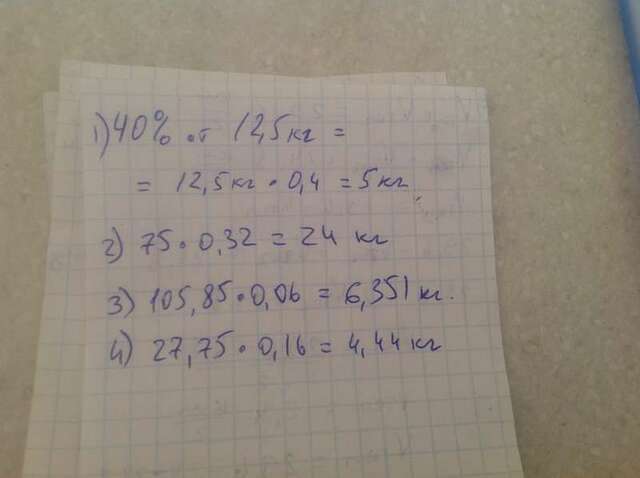 1) 40% от 12,5 кг =
= 12,5 кг · 0,4 = 5 кг.
2) 75 · 0,32 = 24 кг
3) 105,85 · 0,06 = 6,351 кг.
4) 27,75 · 0,16 = 4,44 кг